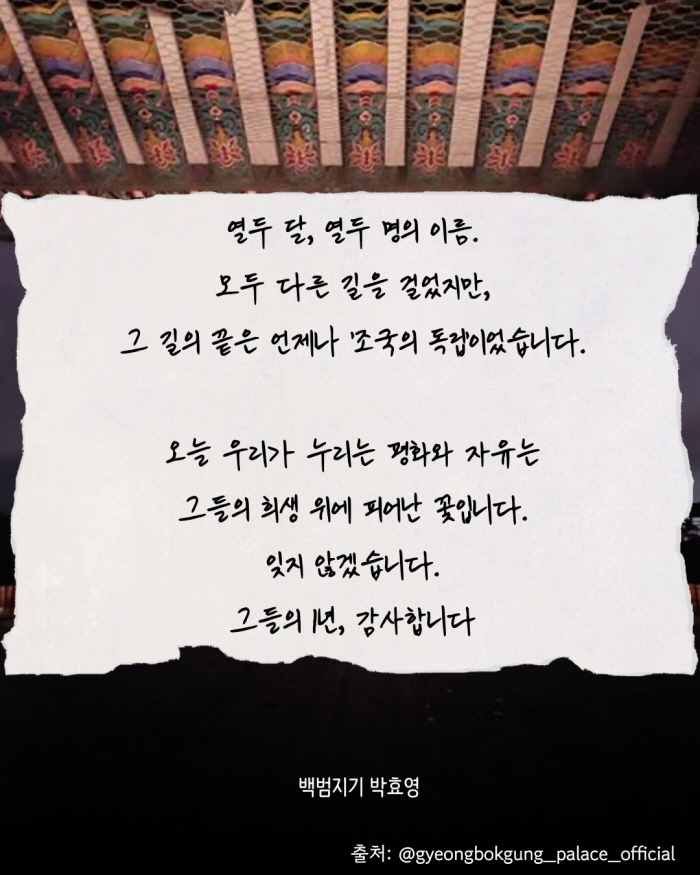 열두 달, 열두 명의 이름.
모두 다른 길을 걸었지만,
그 길의 끝은 언제나 '조국의 독립'이었습니다.
오늘 우리가 누리는 평화와 자유는
그들의 희생 위에 피어난 꽃입니다.
잊지 않겠습니다.
그들의 1년, 감사합니다
백범지기 박효영
출처: @gyeongbokgung_palace_official